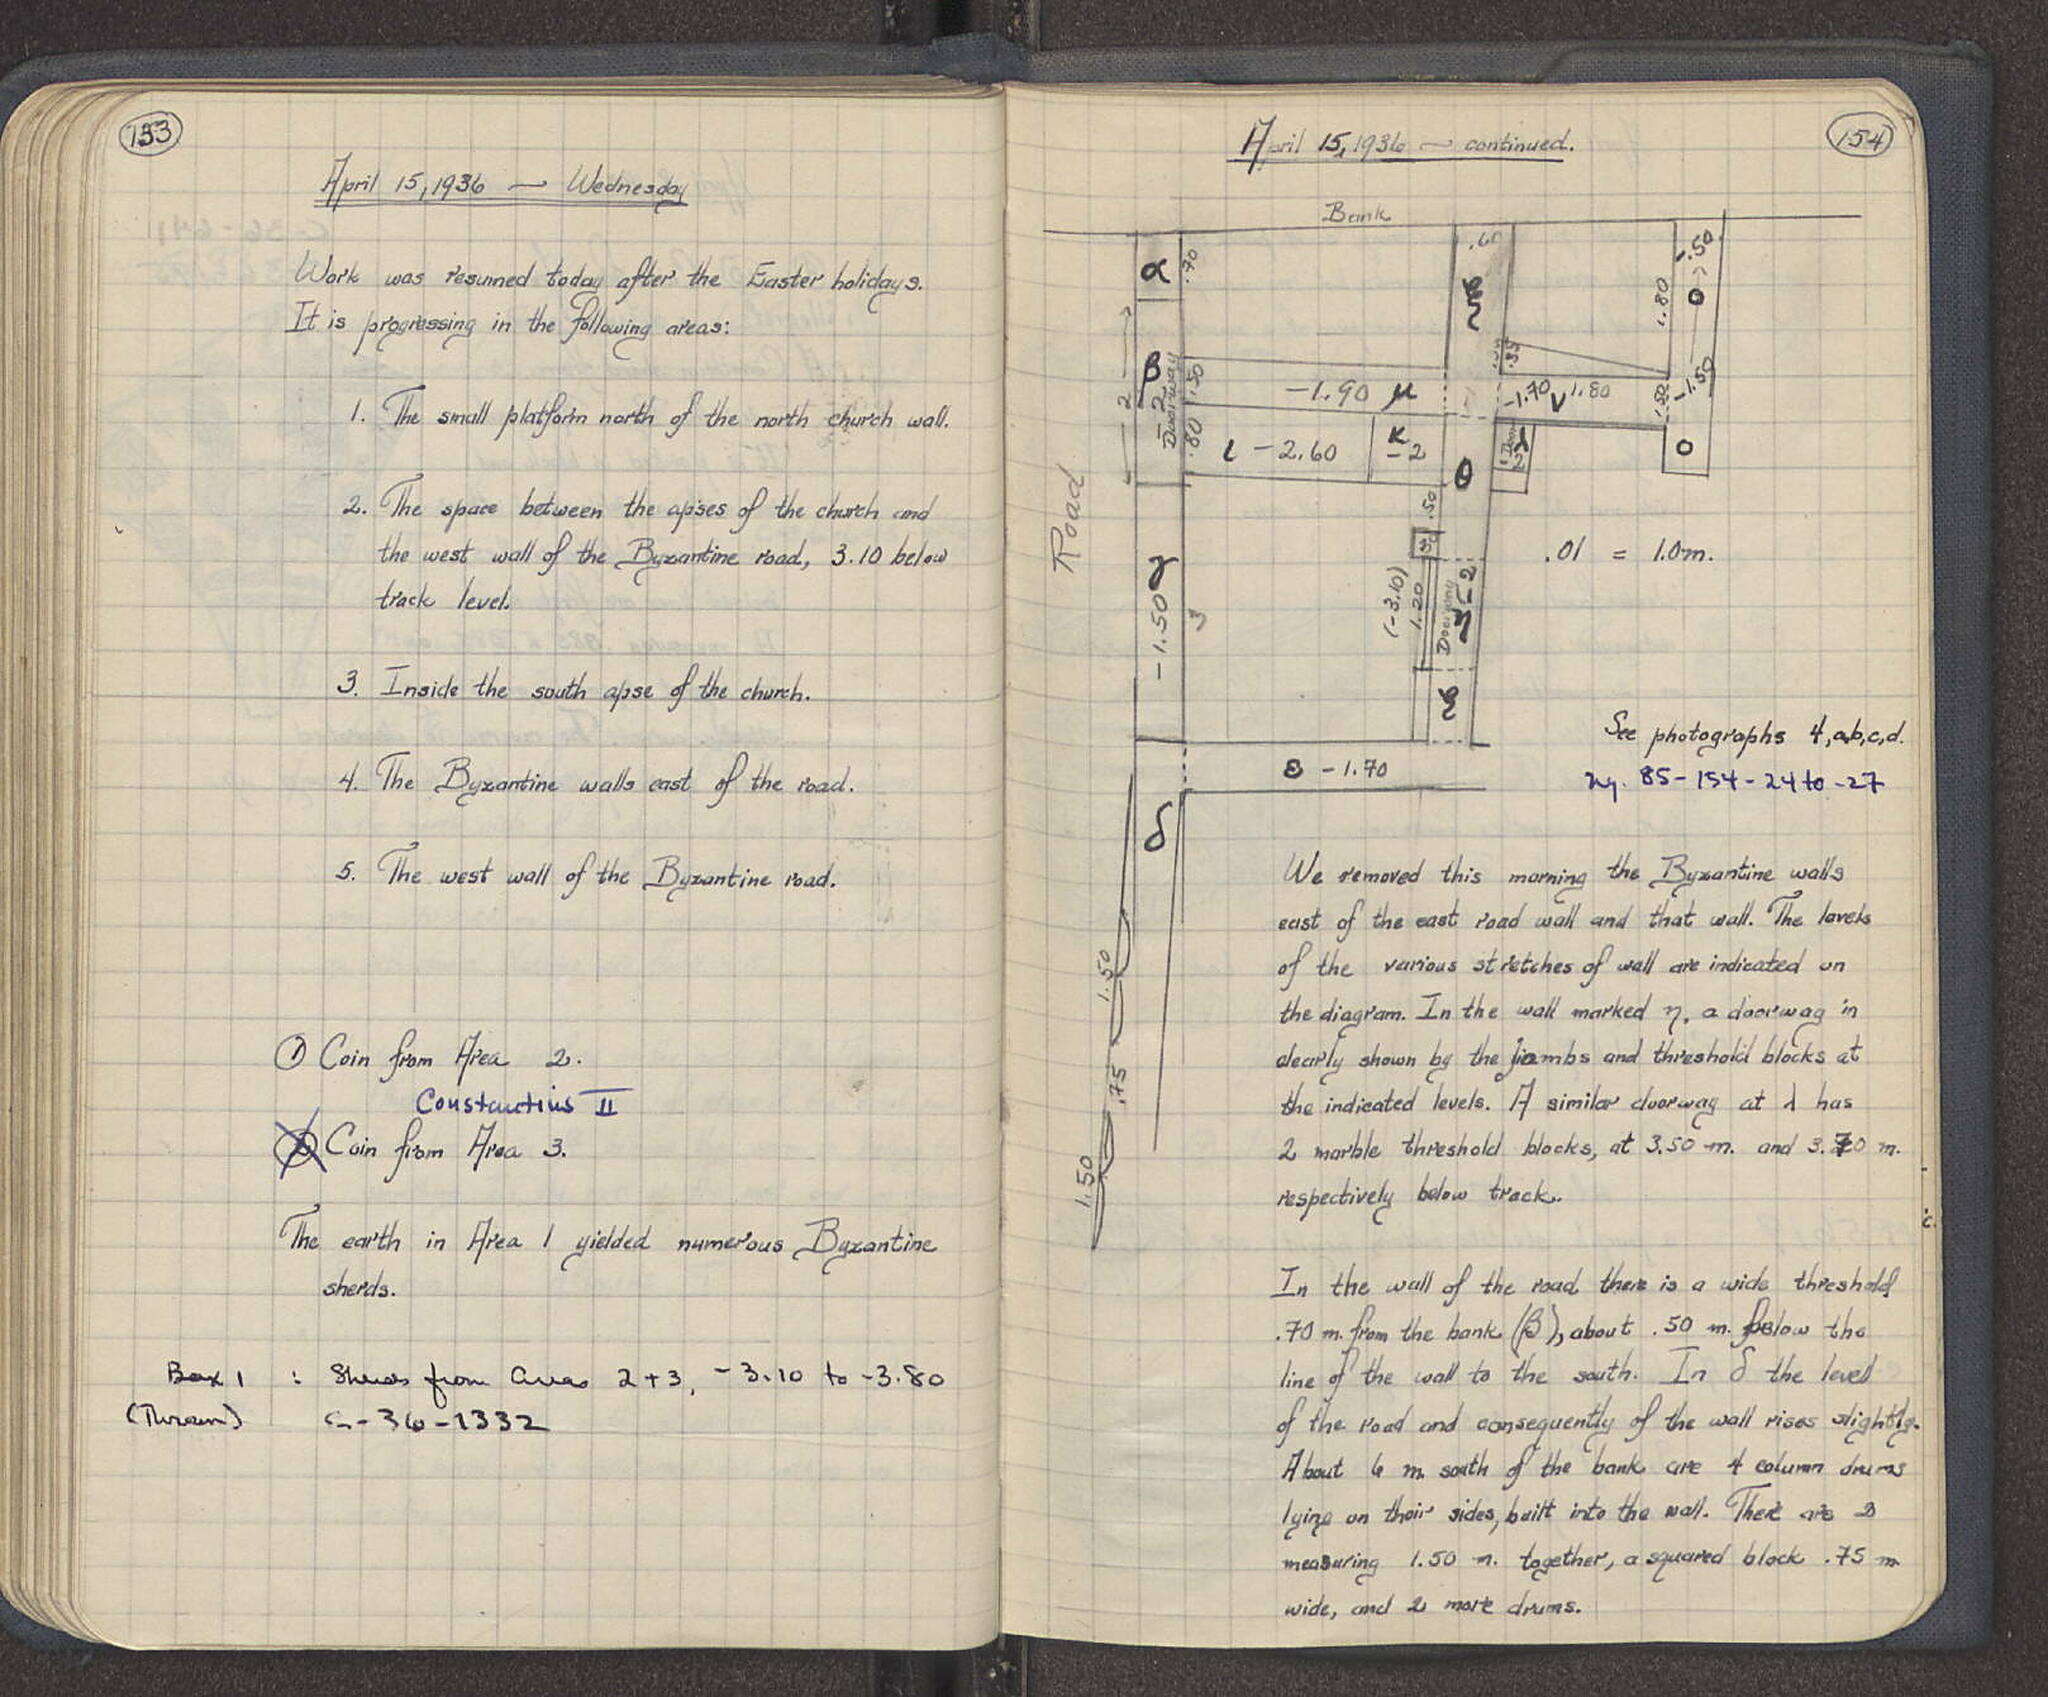 153
April 15, 1936 — Wednesday
Work was resumed today after the Easter holidays.
It is progressing in the following areas:
1. The small platform north of the north church wall.
2. The space between the apses of the church and
the west wall of the Byzantine road, 3.10 below
track level.
3. Inside the south apse of the church.
4. The Byzantine walls east of the road.
5. The west wall of the Byzantine road.
① Coin from Area 2.
Constantius II
② Coin from Area 3.
The earth in Area 1 yielded numerous Byzantine
sherds.
Box 1 : Sherds from areas 2+3, -3.10 to -3.80
C-36-1332
154
April 15, 1936 — continued.
Bank
α .70
.60 ξ
-.50
1.80 ο
β 1.50
2 Doorway -2
.35
-1.90 μ
-1.70 ν 1.80
-1.50
.80
ι -2.60
κ -2
θ
λ -2
ο
Road
.50
.01 = 1.0 m.
γ -1.50
3
(-3.10)
1.20
Doorway η -2
ξ
See photographs 4,a,b,c,d.
ng. 85-154-24 to -27
ε -1.70
δ
1.50
.75
1.50
We removed this morning the Byzantine walls
east of the east road wall and that wall. The levels
of the various stretches of wall are indicated on
the diagram. In the wall marked η, a doorway in
clearly shown by the jambs and threshold blocks at
the indicated levels. A similar doorway at λ has
2 marble threshold blocks, at 3.50 m. and 3.70 m.
respectively below track.
In the wall of the road there is a wide threshold
.70 m. from the bank (β), about .50 m. below the
line of the wall to the south. In δ the level
of the road and consequently of the wall rises slightly.
About 6 m. south of the bank are 4 column drums
lying on their sides, built into the wall. There are 2
measuring 1.50 m. together, a squared block .75 m
wide, and 2 more drums.